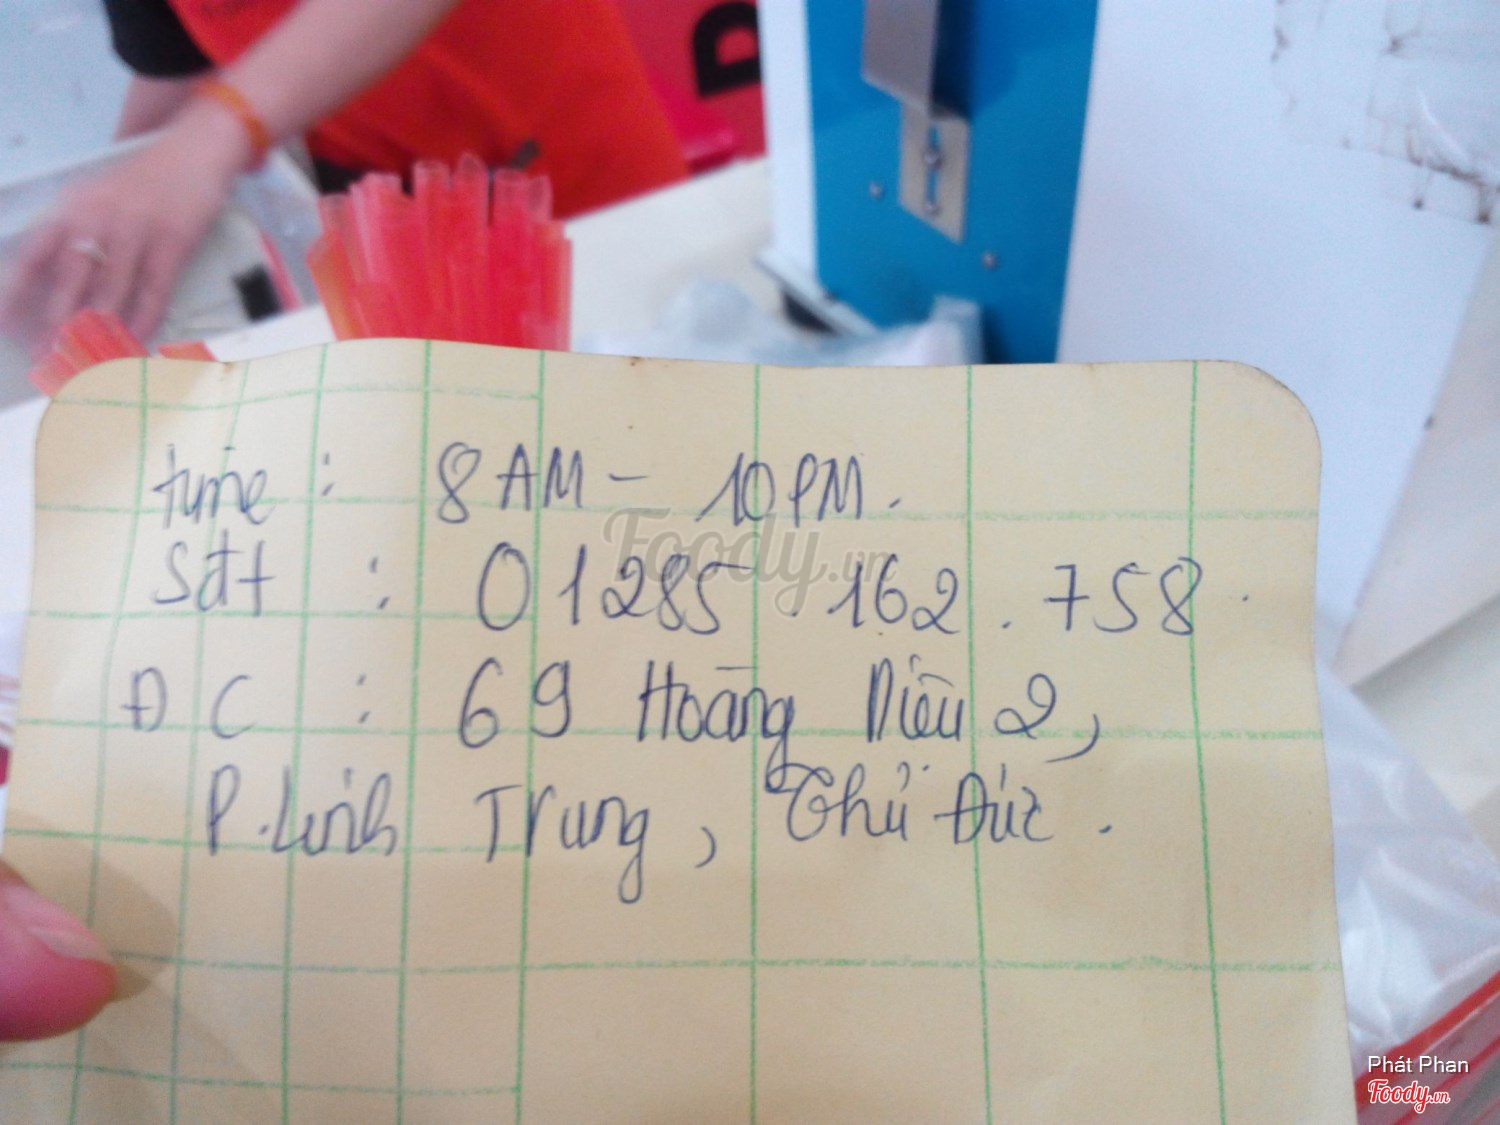 time : 8 AM - 10 PM.
Sđt : 01285.162.758.
ĐC : 69 Hoàng Diệu 2,
P. Linh Trung, Thủ Đức.
Foody.vn
Phát Phan
Foody.vn